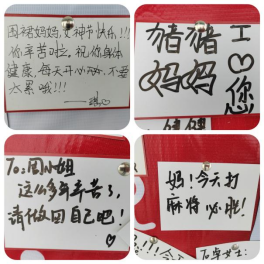 妈妈,女神节快乐!!!
你辛苦啦。祝你身体
健康,每天开心,不要
太累哦!!!
猪猪
妈妈
工
♡
您
To:周小姐
这么多年辛苦了,
请做回自己吧!
妈!今天打
麻将必胜!